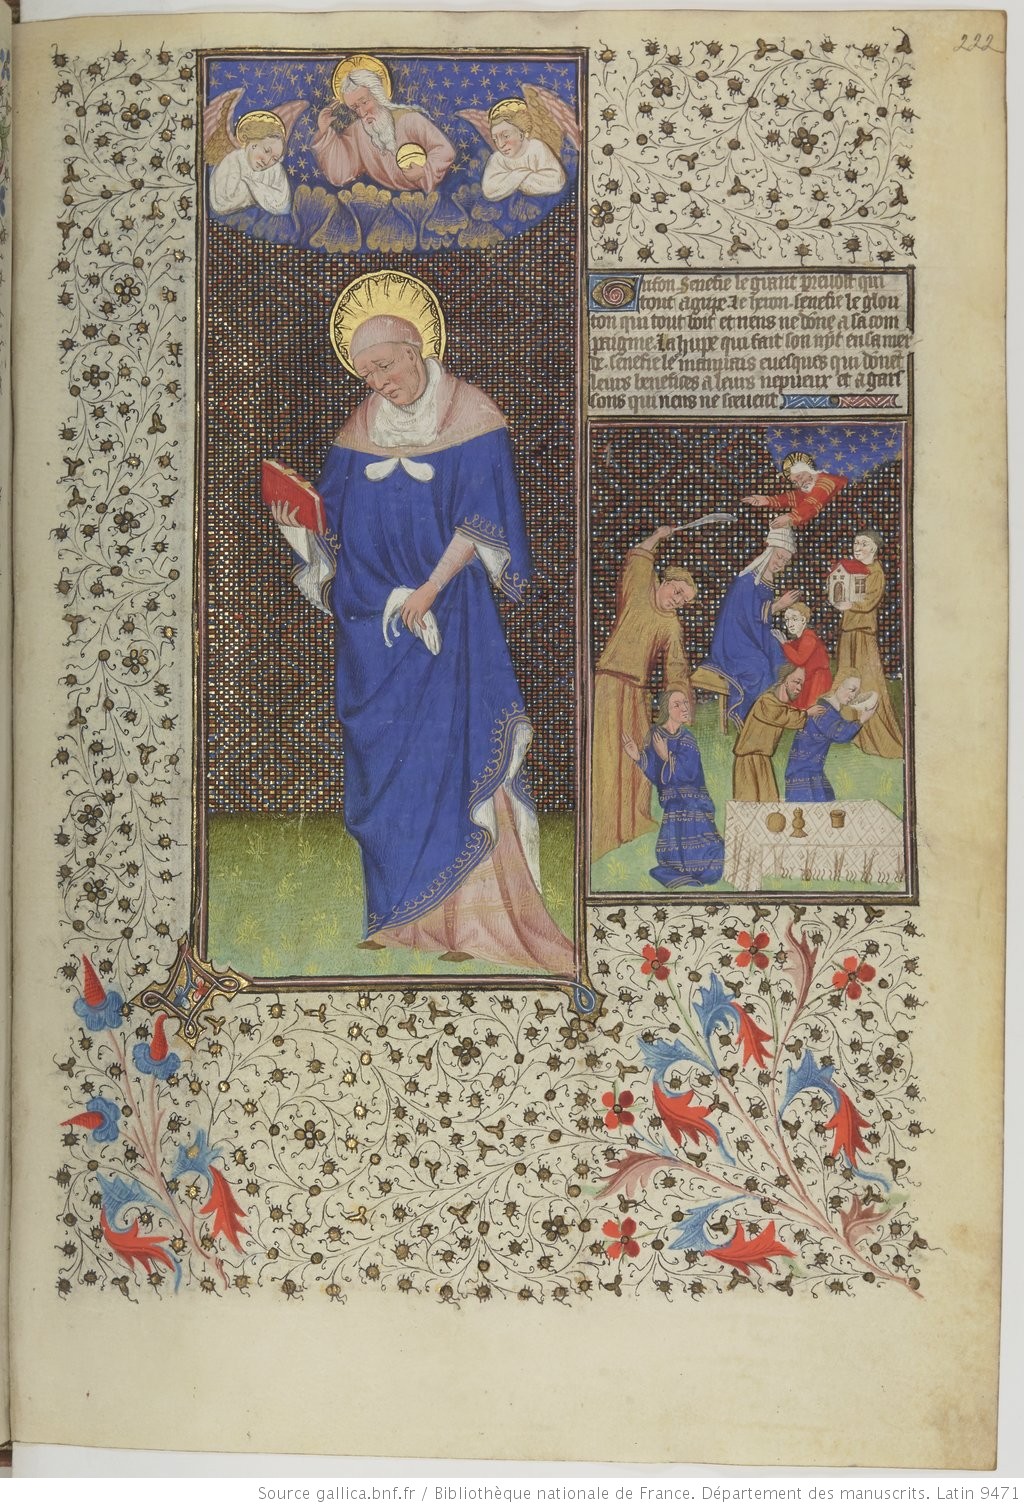 222
Grifon senefie le grant prelait qui
tout agripe. Le lyon senefie le glou
ton qui tout boit et riens ne done a sa com
paignie. La hupe qui fait son nyt en sa mer
de. senefie le mauuais euesques qui donet
leurs benefices a leurs nepueux et a gars
sons qui riens ne sceuent
Source gallica.bnf.fr / Bibliothèque nationale de France. Département des manuscrits. Latin 9471